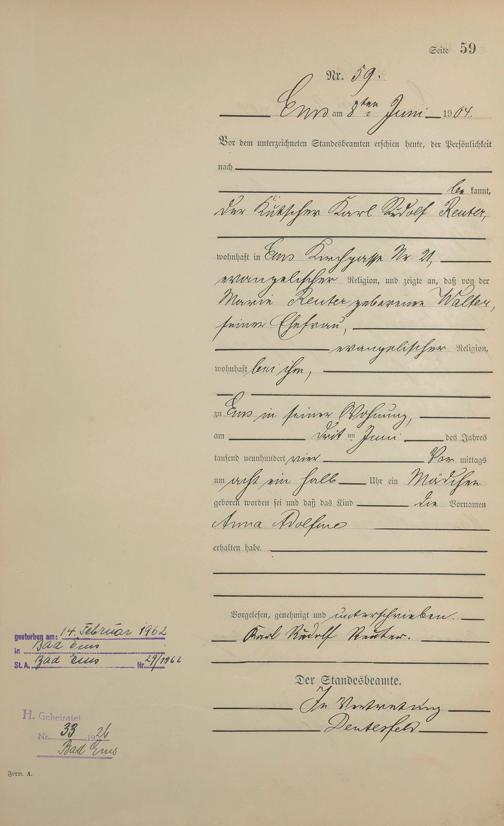 Seite 59
Nr. 59.
Ems am 8ten Juni 1904.
Vor dem unterzeichneten Standesbeamten erschien heute, der Persönlichkeit
nach
be kannt,
der Kutscher Karl Rudolf Reuter,
wohnhaft in Ems Kirchgasse Nr 21,
evangelischer Religion, und zeigte an, daß von der
Marie Reuter geborenen Walter,
seiner Ehefrau,
evangelischer Religion,
wohnhaft bei ihm,
zu Ems in seiner Wohnung,
am dritten Juni des Jahres
tausend neunhundert vier Vor mittags
um acht ein halb Uhr ein Mädchen
geboren worden sei und daß das Kind die Vornamen
Anna Adolfine
erhalten habe.
Vorgelesen, genehmigt und unterschrieben.
Karl Rudolf Reuter.
Der Standesbeamte.
In Vertretung
gestorben am: 14. Februar 1962
in Bad Ems
St. A. Bad Ems Nr. 29/1962
H. Geheiratet
Nr. 33 1926
Bad Ems
Form. A.